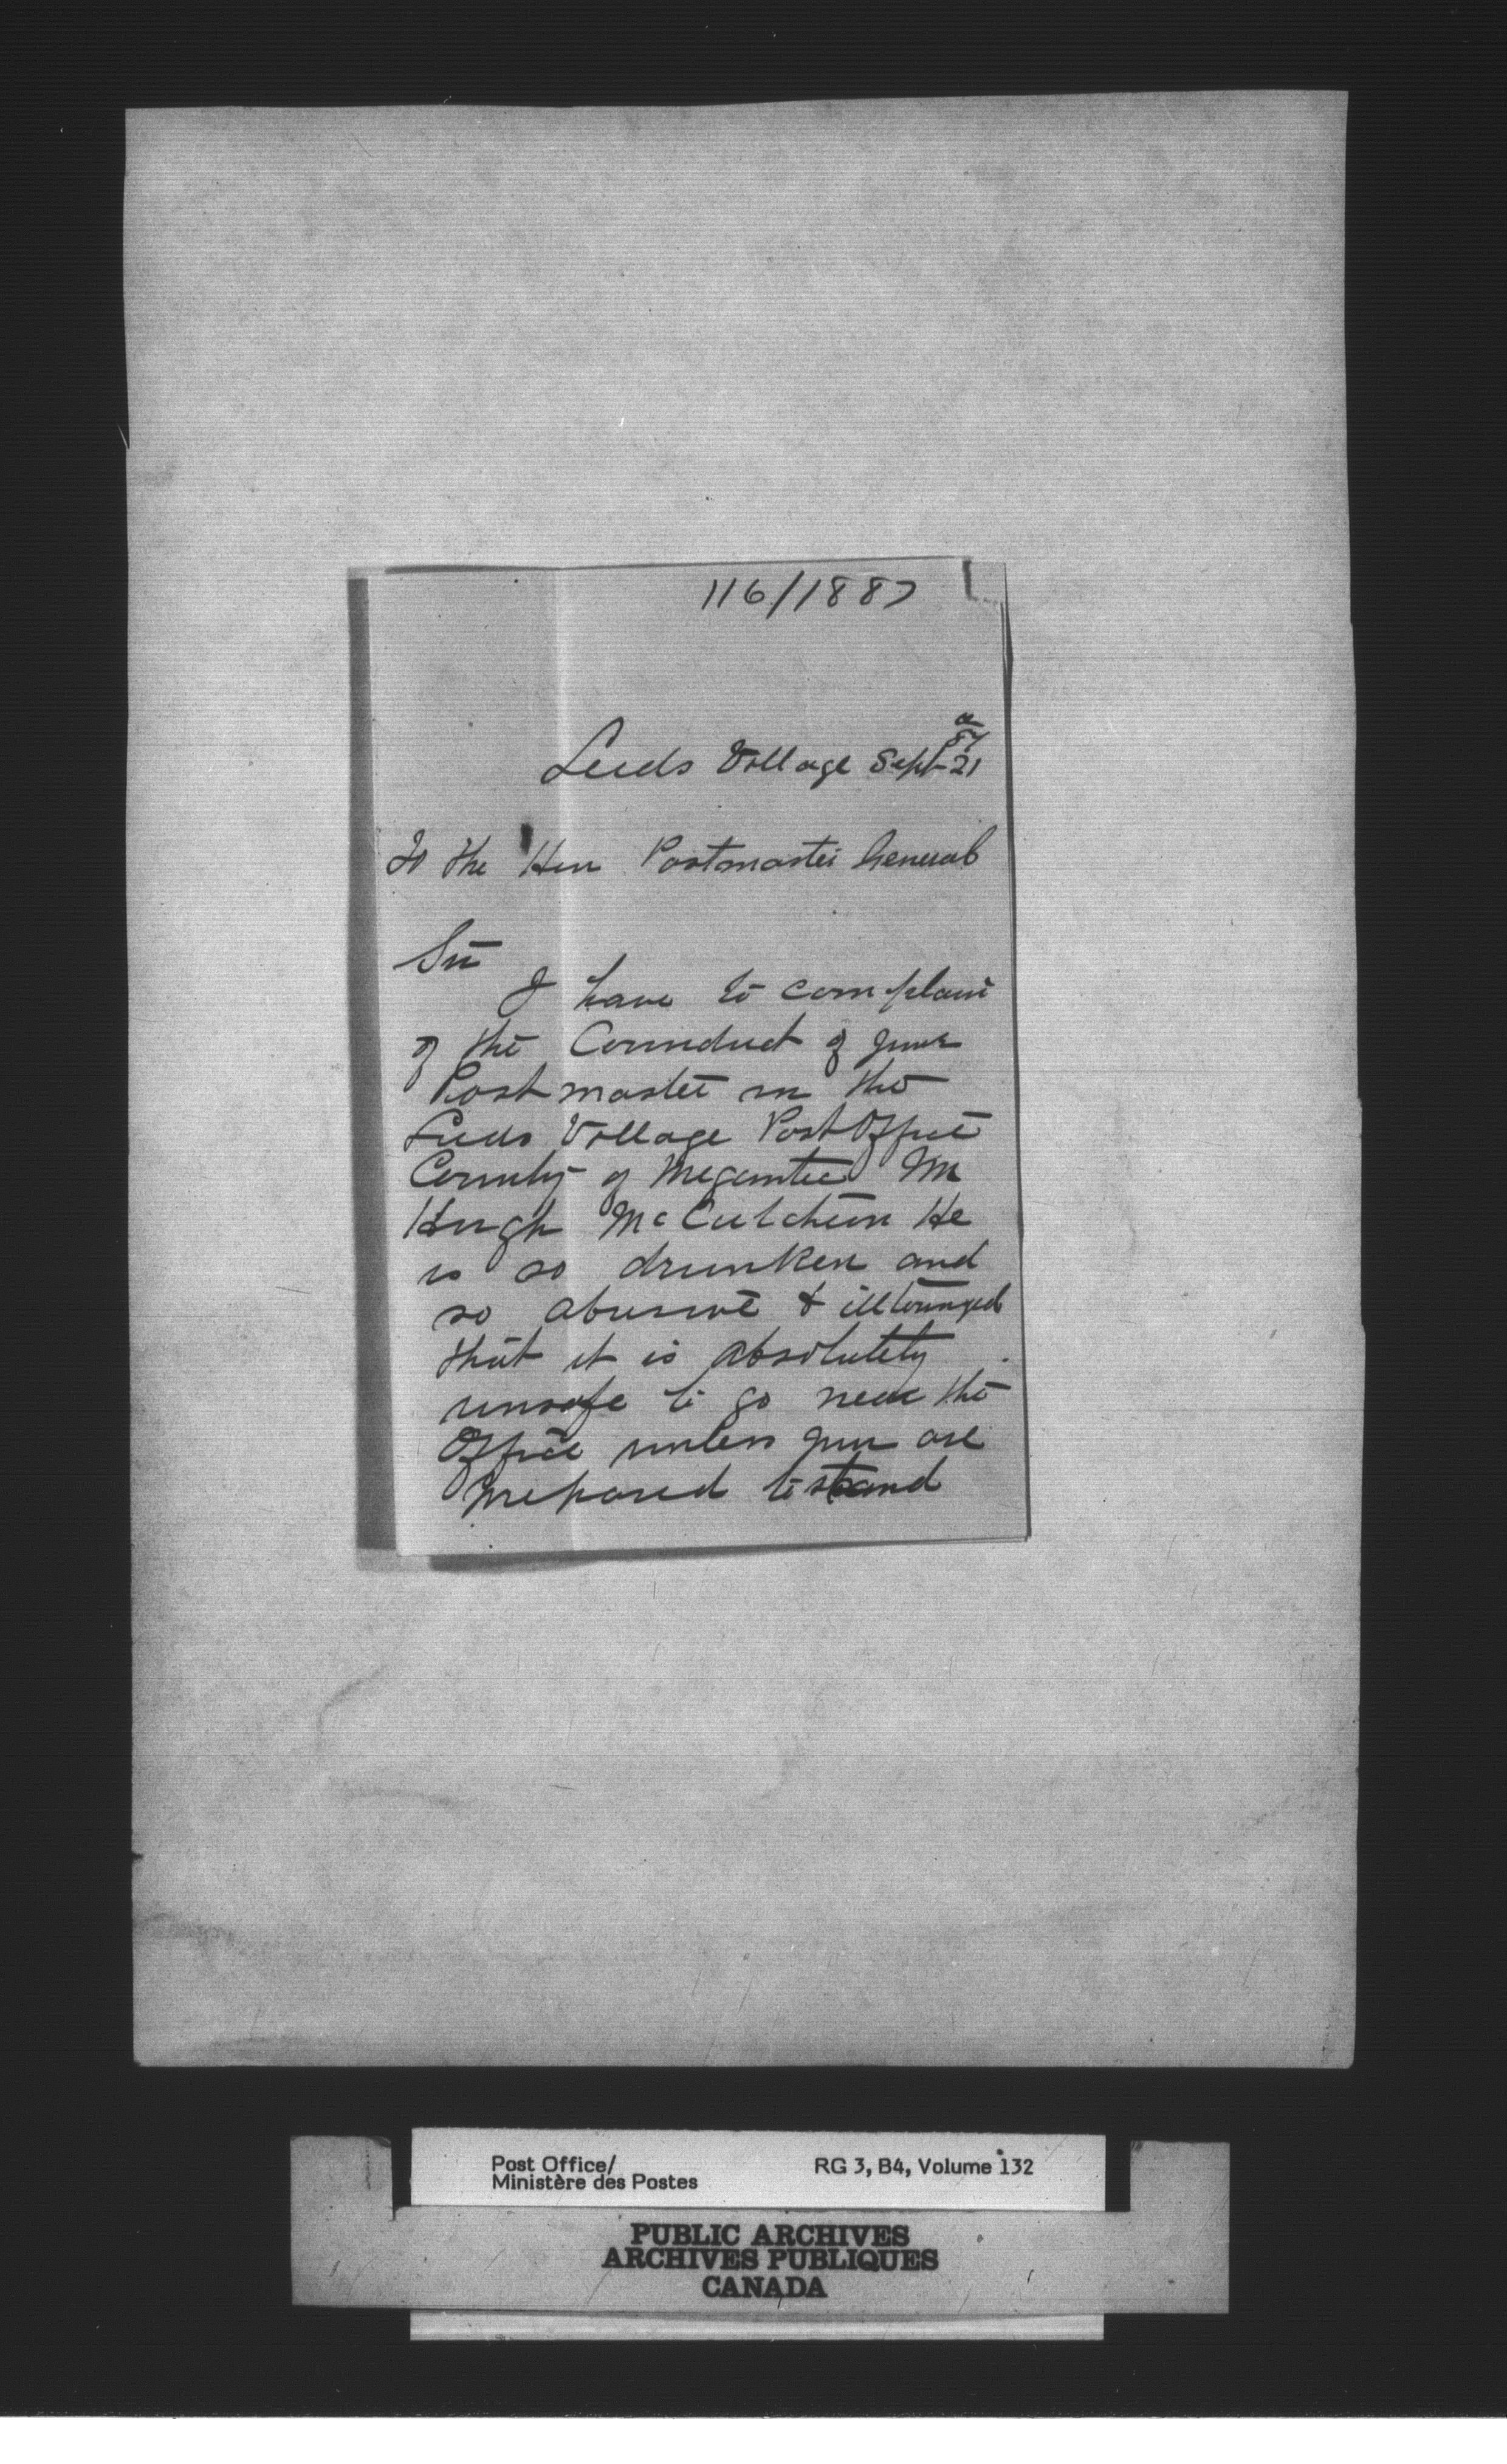 116/1887
87
Leeds Village Sept 21
To the Hon Postmaster General
Sir
I have to complain
of the Connduct of your
Postmaster in the
Leeds Village Post Office
County of Megantic Mr
Hugh McCutcheon He
is so drunken and
so abusive & illtounged
that it is absolutely
unsafe to go near the
Office unless you are
prepared to stand
Post Office/ RG 3, B4, Volume 132
Ministère des Postes
PUBLIC ARCHIVES
ARCHIVES PUBLIQUES
CANADA